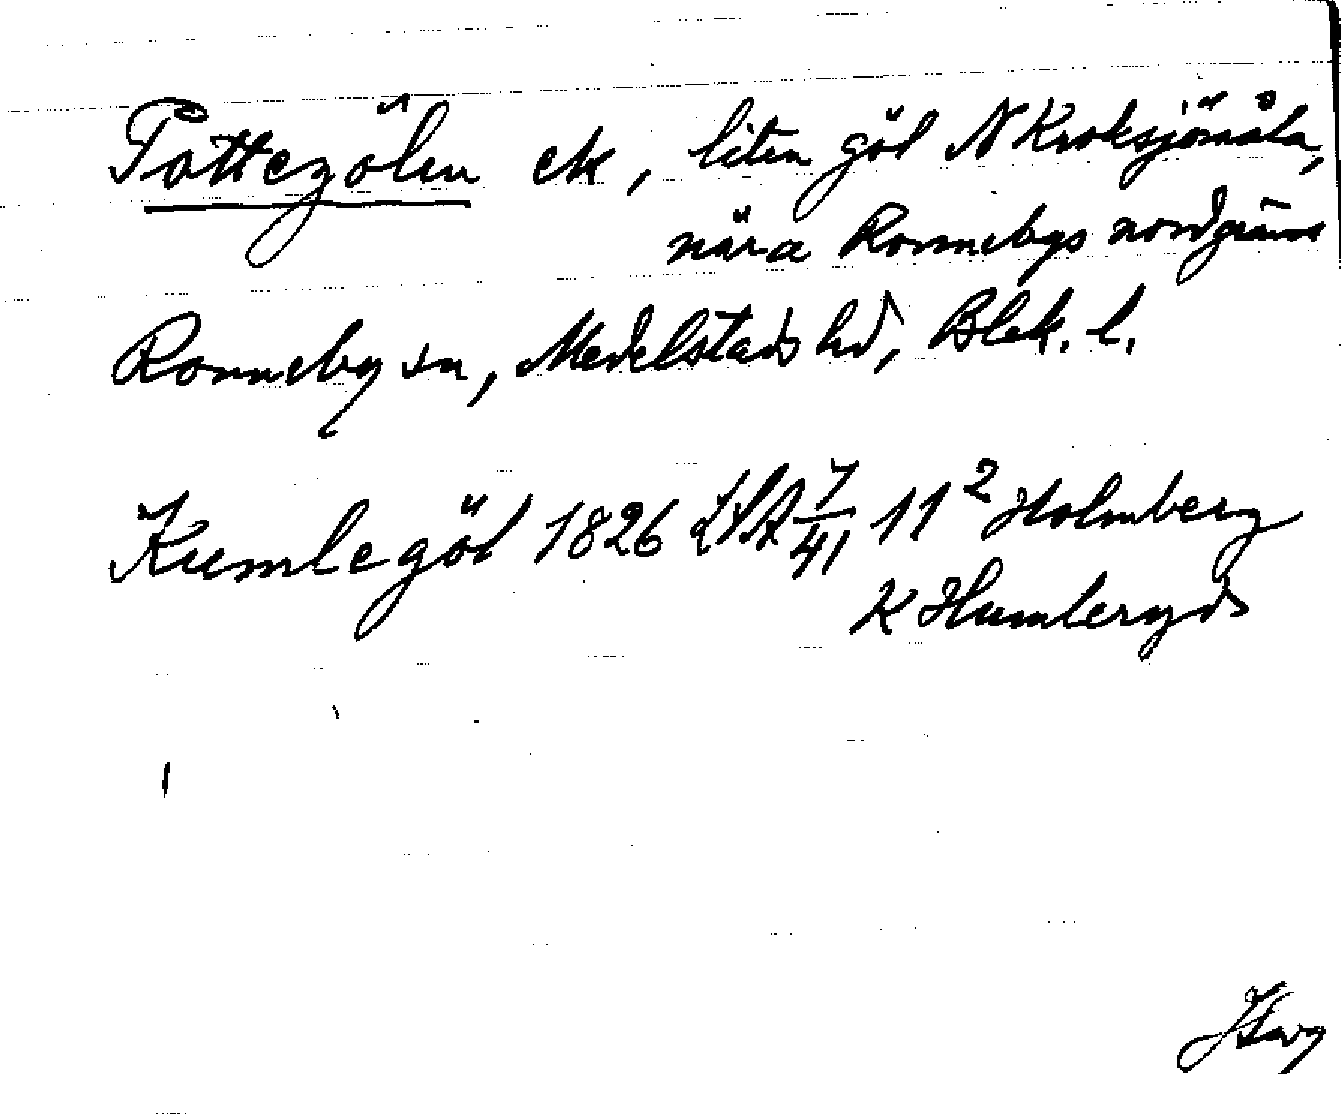 Pottegölen ek, liten göl N Kroksjömåla,
nära Ronnebys nordgräns
Ronneby sn, Medelstads hd, Blek. l.
Kumlegöl 1826 LSA 7/41, 11² Holmberg
K Humleryds